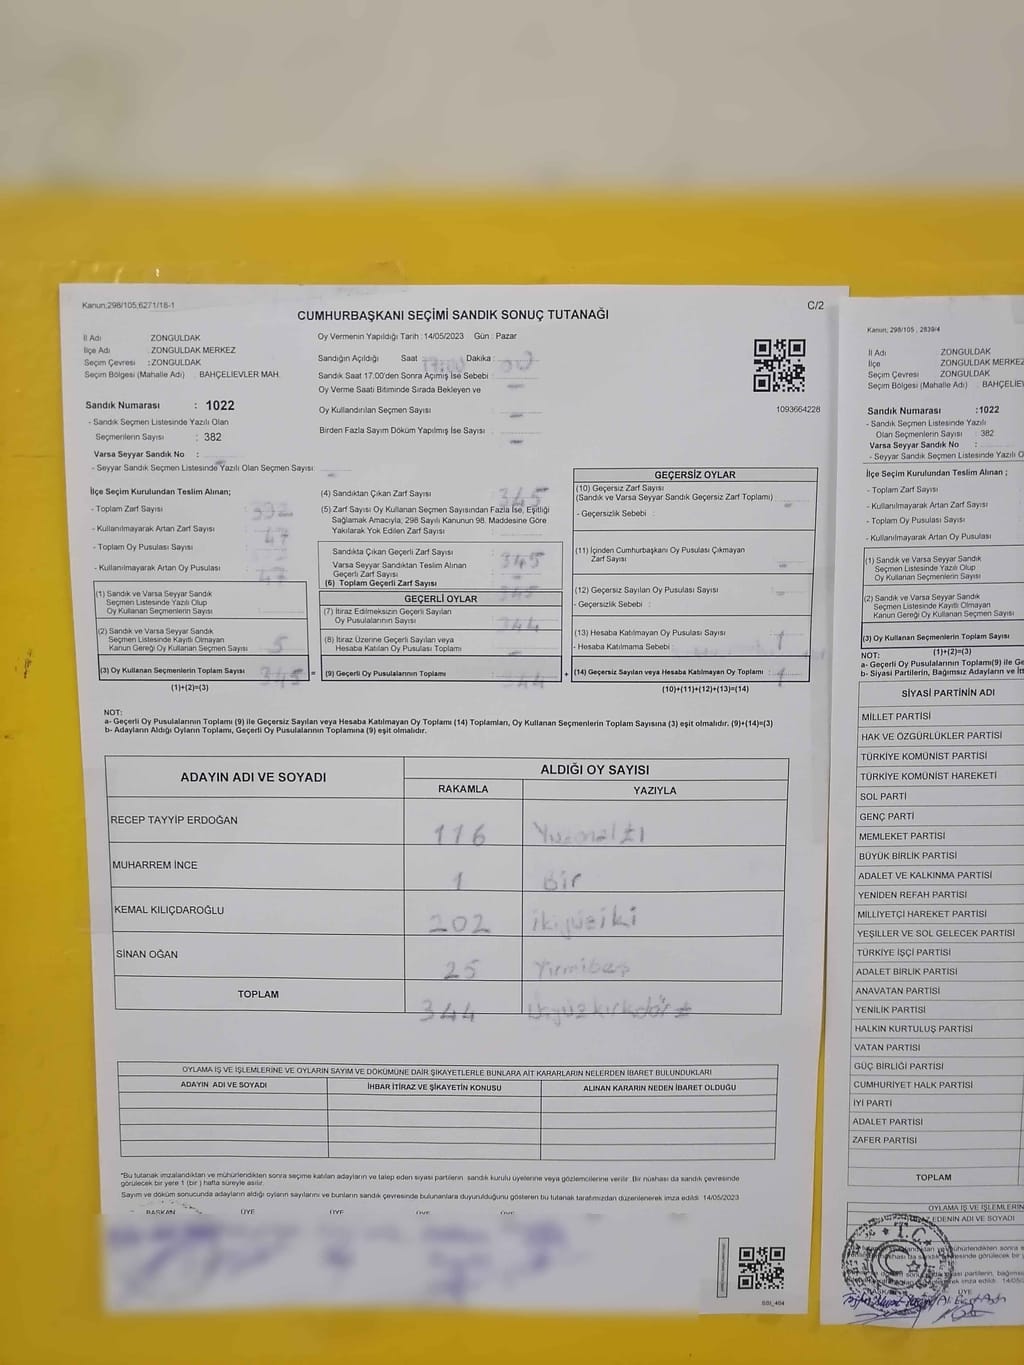 Kanun;298/105;6271/18-1
C/2
CUMHURBAŞKANI SEÇİMİ SANDIK SONUÇ TUTANAĞI
İl Adı ZONGULDAK
İlçe Adı : ZONGULDAK MERKEZ
Seçim Çevresi : ZONGULDAK
Seçim Bölgesi (Mahalle Adı) : BAHÇELİEVLER MAH.
Sandık Numarası : 1022
- Sandık Seçmen Listesinde Yazılı Olan
Seçmenlerin Sayısı : 382
Varsa Seyyar Sandık No :
- Seyyar Sandık Seçmen Listesinde Yazılı Olan Seçmen Sayısı:
Oy Vermenin Yapıldığı Tarih : 14/05/2023 Gün : Pazar
Sandığın Açıldığı Saat : 17:00 Dakika : 00
Sandık Saat 17.00'den Sonra Açımış İse Sebebi :
Oy Verme Saati Bitiminde Sırada Bekleyen ve
Oy Kullandırılan Seçmen Sayısı :
Birden Fazla Sayım Döküm Yapılmış İse Sayısı :
1093664228
İlçe Seçim Kurulundan Teslim Alınan;
- Toplam Zarf Sayısı :
- Kullanılmayarak Artan Zarf Sayısı : 47
- Toplam Oy Pusulası Sayısı :
- Kullanılmayarak Artan Oy Pusulası : 47
(1) Sandık ve Varsa Seyyar Sandık
Seçmen Listesinde Yazılı Olup
Oy Kullanan Seçmenlerin Sayısı :
(2) Sandık ve Varsa Seyyar Sandık
Seçmen Listesinde Kayıtlı Olmayan
Kanun Gereği Oy Kullanan Seçmen Sayısı : 5
(3) Oy Kullanan Seçmenlerin Toplam Sayısı : 345
(1)+(2)=(3)
(4) Sandıktan Çıkan Zarf Sayısı : 345
(5) Zarf Sayısı Oy Kullanan Seçmen Sayısından Fazla İse, Eşitliği
Sağlamak Amacıyla, 298 Sayılı Kanunun 98. Maddesine Göre
Yakılarak Yok Edilen Zarf Sayısı :
Sandıkta Çıkan Geçerli Zarf Sayısı : 345
Varsa Seyyar Sandıktan Teslim Alınan
Geçerli Zarf Sayısı :
(6) Toplam Geçerli Zarf Sayısı : 345
GEÇERLİ OYLAR
(7) İtiraz Edilmeksizin Geçerli Sayılan
Oy Pusulalarının Sayısı : 344
(8) İtiraz Üzerine Geçerli Sayılan veya
Hesaba Katılan Oy Pusulası Toplamı :
= (9) Geçerli Oy Pusulalarının Toplamı : 344
GEÇERSİZ OYLAR
(10) Geçersiz Zarf Sayısı
(Sandık ve Varsa Seyyar Sandık Geçersiz Zarf Toplamı) :
- Geçersizlik Sebebi :
(11) İçinden Cumhurbaşkanı Oy Pusulası Çıkmayan
Zarf Sayısı :
(12) Geçersiz Sayılan Oy Pusulası Sayısı :
- Geçersizlik Sebebi :
(13) Hesaba Katılmayan Oy Pusulası Sayısı : 1
- Hesaba Katılmama Sebebi :
+ (14) Geçersiz Sayılan veya Hesaba Katılmayan Oy Toplamı : 1
(10)+(11)+(12)+(13)=(14)
NOT:
a- Geçerli Oy Pusulalarının Toplamı (9) ile Geçersiz Sayılan veya Hesaba Katılmayan Oy Toplamı (14) Toplamları, Oy Kullanan Seçmenlerin Toplam Sayısına (3) eşit olmalıdır. (9)+(14)=(3)
b- Adayların Aldığı Oyların Toplamı, Geçerli Oy Pusulalarının Toplamına (9) eşit olmalıdır.
ADAYIN ADI VE SOYADI ALDIĞI OY SAYISI
RAKAMLA YAZIYLA
RECEP TAYYİP ERDOĞAN 116 Yüzonaltı
MUHARREM İNCE 1 Bir
KEMAL KILIÇDAROĞLU 202 ikiyüziki
SİNAN OĞAN 25 Yirmibeş
TOPLAM 344 Üçyüzkırkdört
OYLAMA İŞ VE İŞLEMLERİNE VE OYLARIN SAYIM VE DÖKÜMÜNE DAİR ŞİKAYETLERLE BUNLARA AİT KARARLARIN NELERDEN İBARET BULUNDUKLARI
ADAYIN ADI VE SOYADI İHBAR İTİRAZ VE ŞİKAYETİN KONUSU ALINAN KARARIN NEDEN İBARET OLDUĞU
*Bu tutanak imzalandıktan ve mühürlendikten sonra seçime katılan adayların ve talep eden siyasi partilerin sandık kurulu üyelerine veya gözlemcilerine verilir .Bir nüshası da sandık çevresinde
görülecek bir yere 1 (bir ) hafta süreyle asılır.
Sayım ve döküm sonucunda adayların aldığı oyların sayılarını ve bunların sandık çevresinde bulunanlara duyurulduğunu gösteren bu tutanak tarafımızdan düzenlenerek imza edildi. 14/05/2023
BAŞKAN ÜYE ÜYE ÜYE ÜYE
Kanun; 298/105 , 2839/4
İl Adı ZONGULDAK
İlçe ZONGULDAK MERKEZ
Seçim Çevresi ZONGULDAK
Seçim Bölgesi (Mahalle Adı) : BAHÇELİEV
Sandık Numarası :1022
- Sandık Seçmen Listesinde Yazılı
Olan Seçmenlerin Sayısı : 382
Varsa Seyyar Sandık No :
- Seyyar Sandık Seçmen Listesinde Yazılı Olan S
İlçe Seçim Kurulundan Teslim Alınan ;
- Toplam Zarf Sayısı
- Kullanılmayarak Artan Zarf Sayısı
- Toplam Oy Pusulası Sayısı
- Kullanılmayarak Artan Oy Pusulası
(1) Sandık ve Varsa Seyyar Sandık
Seçmen Listesinde Yazılı Olup
Oy Kullanan Seçmenlerin Sayısı
(2) Sandık ve Varsa Seyyar Sandık
Seçmen Listesinde Kayıtlı Olmayan
Kanun Gereği Oy Kullanan Seçmen Sayısı
(3) Oy Kullanan Seçmenlerin Toplam Sayısı
(1)+(2)=(3)
NOT:
a- Geçerli Oy Pusulalarının Toplamı(9) ile Ge
b- Siyasi Partilerin, Bağımsız Adayların ve İt
SİYASİ PARTİNİN ADI
MİLLET PARTİSİ
HAK VE ÖZGÜRLÜKLER PARTİSİ
TÜRKİYE KOMÜNİST PARTİSİ
TÜRKİYE KOMÜNİST HAREKETİ
SOL PARTİ
GENÇ PARTİ
MEMLEKET PARTİSİ
BÜYÜK BİRLİK PARTİSİ
ADALET VE KALKINMA PARTİSİ
YENİDEN REFAH PARTİSİ
MİLLİYETÇİ HAREKET PARTİSİ
YEŞİLLER VE SOL GELECEK PARTİSİ
TÜRKİYE İŞÇİ PARTİSİ
ADALET BİRLİK PARTİSİ
ANAVATAN PARTİSİ
YENİLİK PARTİSİ
HALKIN KURTULUŞ PARTİSİ
VATAN PARTİSİ
GÜÇ BİRLİĞİ PARTİSİ
CUMHURİYET HALK PARTİSİ
İYİ PARTİ
ADALET PARTİSİ
ZAFER PARTİSİ
TOPLAM
OYLAMA İŞ VE İŞLEMLERİN
EDENİN ADI VE SOYADI
T.C.
ÜYE